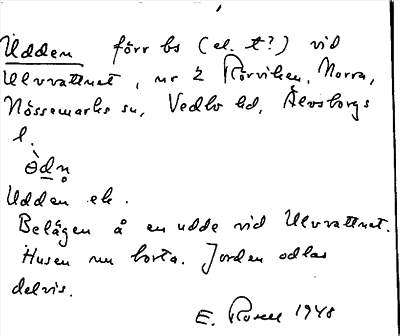 Udden förr bs (el. t?) vid
Ulvvattnet, nr 2 Rörviken, Norra,
Nössemarks sn, Vedbo hd, Älvsborgs
l.
ödn
Udden ek.
Belägen å en udde vid Ulvvattnet.
Husen nu borta. Jorden odlas
delvis.
E. Rosell 1948